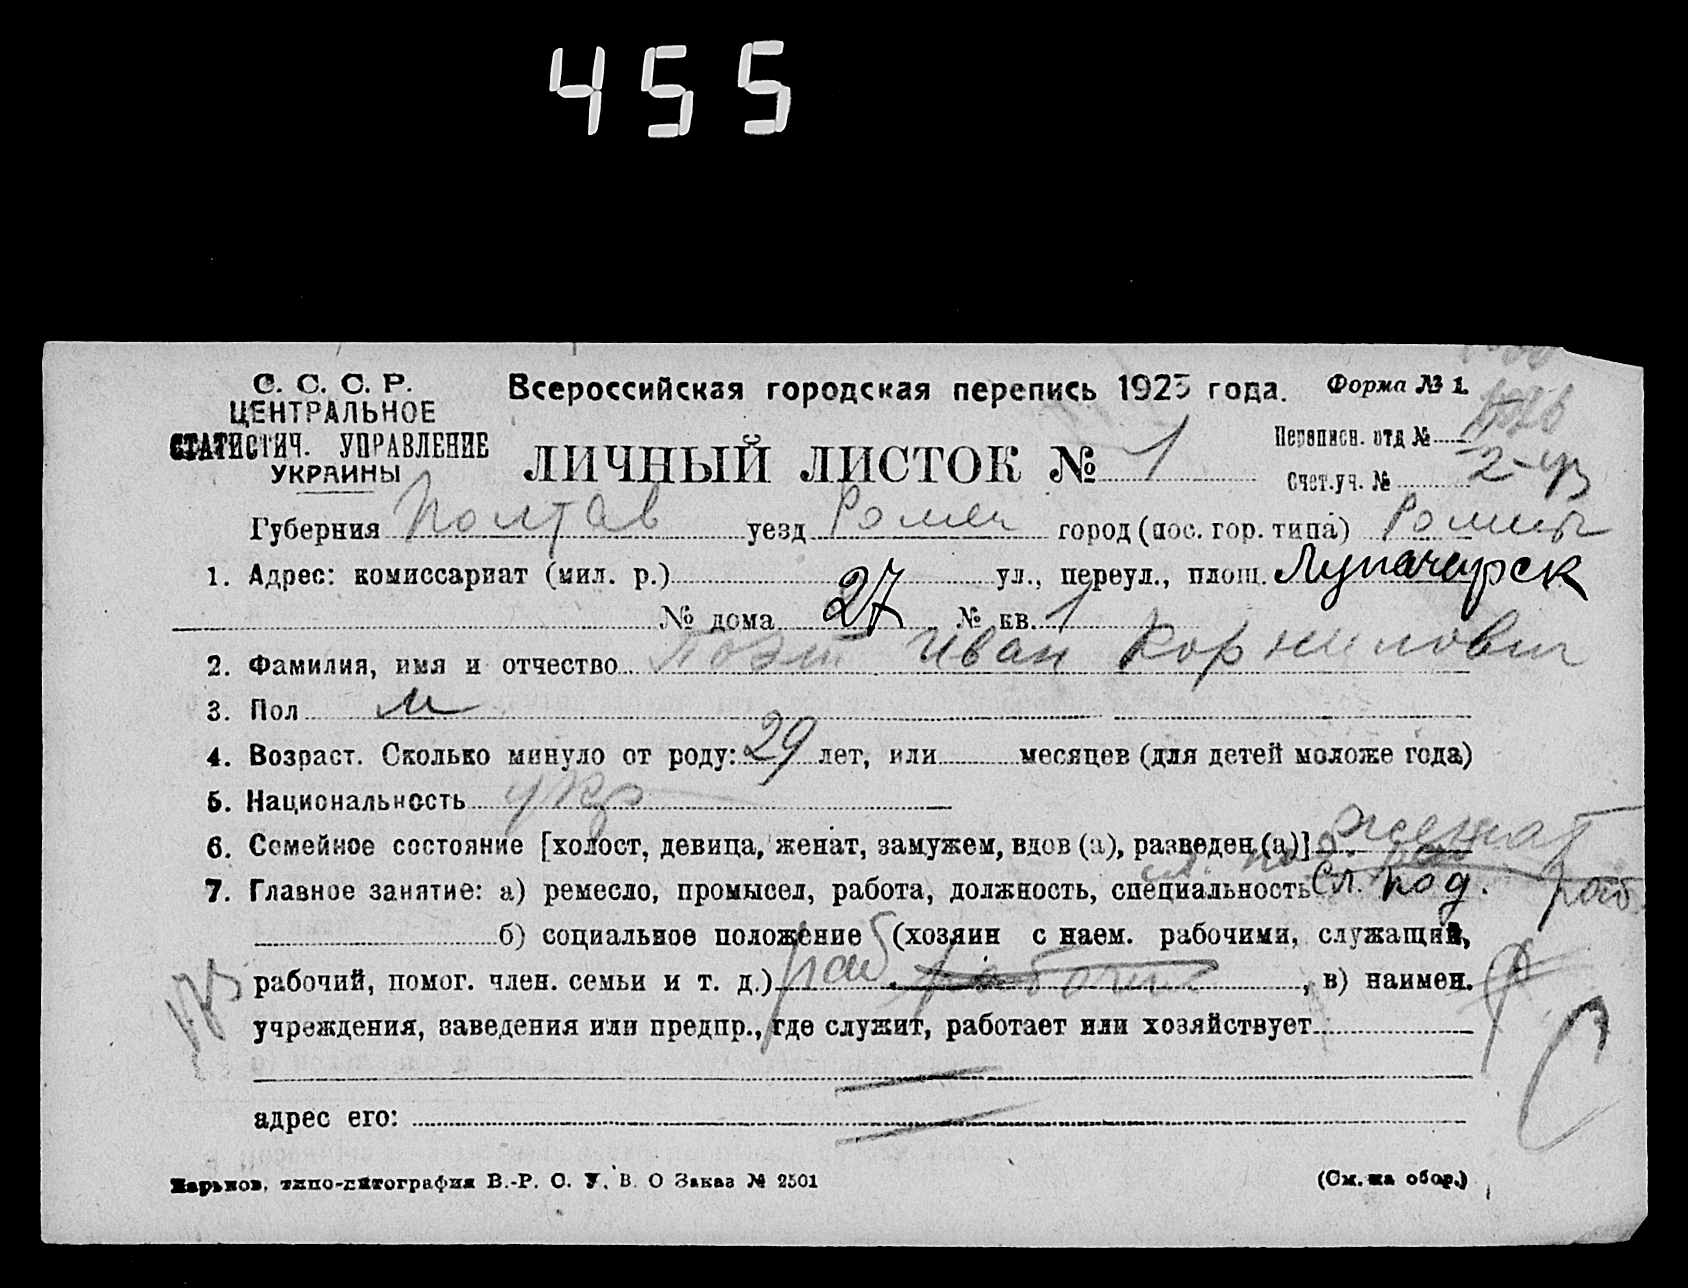 455
С. С. С. Р.
ЦЕНТРАЛЬНОЕ
СТАТИСТИЧ. УПРАВЛЕНИЕ
УКРАИНЫ
Всероссийская городская перепись 1923 года.
Форма № 1.
ЛИЧНЫЙ ЛИСТОК № 1
Переписн. отд №
Счет.уч. № 2-
Губерния Полтав уезд Ромен город (пос. гор. типа) Ромны
1. Адрес: комиссариат (мил. р.) ул., переул., площ. Луначарск
№ дома 27 № кв. 1
2. Фамилия, имя и отчество Поэт Иван Корнилович
3. Пол м
4. Возраст. Сколько минуло от роду: 29 лет, или месяцев (для детей моложе года)
5. Национальность укр
6. Семейное состояние [холост, девица, женат, замужем, вдов (а), разведен (а)] женат
7. Главное занятие: а) ремесло, промысел, работа, должность, специальность Сл. под. раб.
б) социальное положение (хозяин с наем. рабочими, служащий,
рабочий, помог. член. семьи и т. д.) раб. рабочий, в) наимен.
учреждения, заведения или предпр., где служит, работает или хозяйствует
адрес его:
Харьков, типо-литография В.-Р. С. У. В. О Заказ № 2501
(См. на обор.)